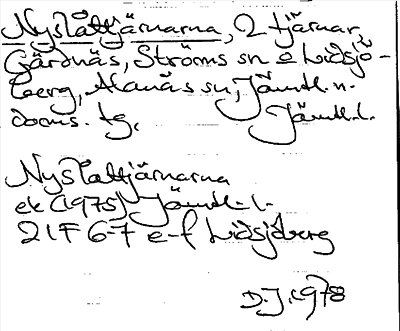 Nyslåttjärnarna, 2 tjärnar,
Gärdnäs, Ströms sn o Lidsjö-
berg, Alanäs sn, Jämtl. n.
doms. tg, Jämtl. l.
Nyslåttjärnarna
ek (1975) Jämtl. l.
21F 6-7 e-f Lidsjöberg
D.J. 1978